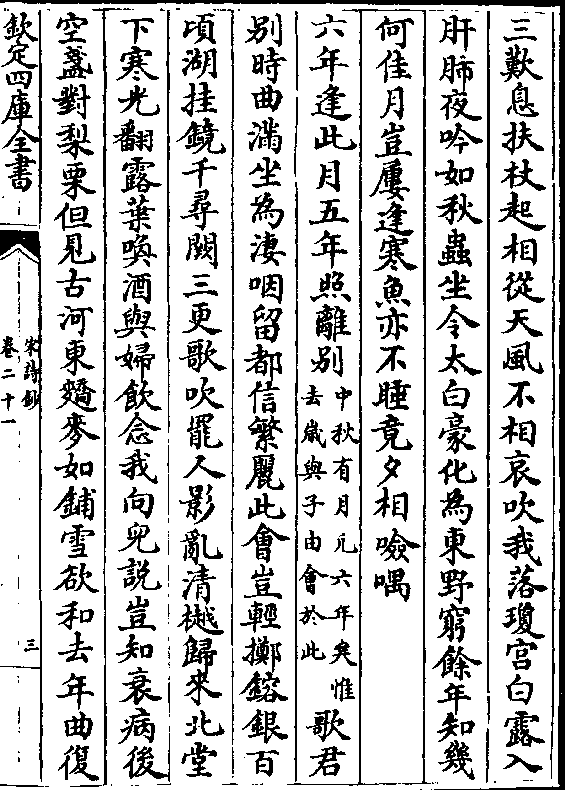 三歎息扶杖起相從天風不相哀吹我落瓊宫白露入
肝肺夜吟如秋蟲坐令太白豪化為東野窮餘年知幾
何佳月豈屢逢寒魚亦不睡竟夕相噞喁
六年逢此月五年照離别中秋有月凡六年矣惟
去歲與子由會於此歌君
别時曲滿坐為淒咽留都信繁麗此會豈輕擲鎔銀百
頃湖挂鏡千尋闕三更歌吹罷人影亂清樾歸來北堂
下寒光翻露葉喚酒與婦飲念我向兒説豈知衰病後
空盞對梨栗但見古河東蕎麥如鋪雪欲和去年曲復
欽定四庫全書
宋詩鈔
卷二十一
三